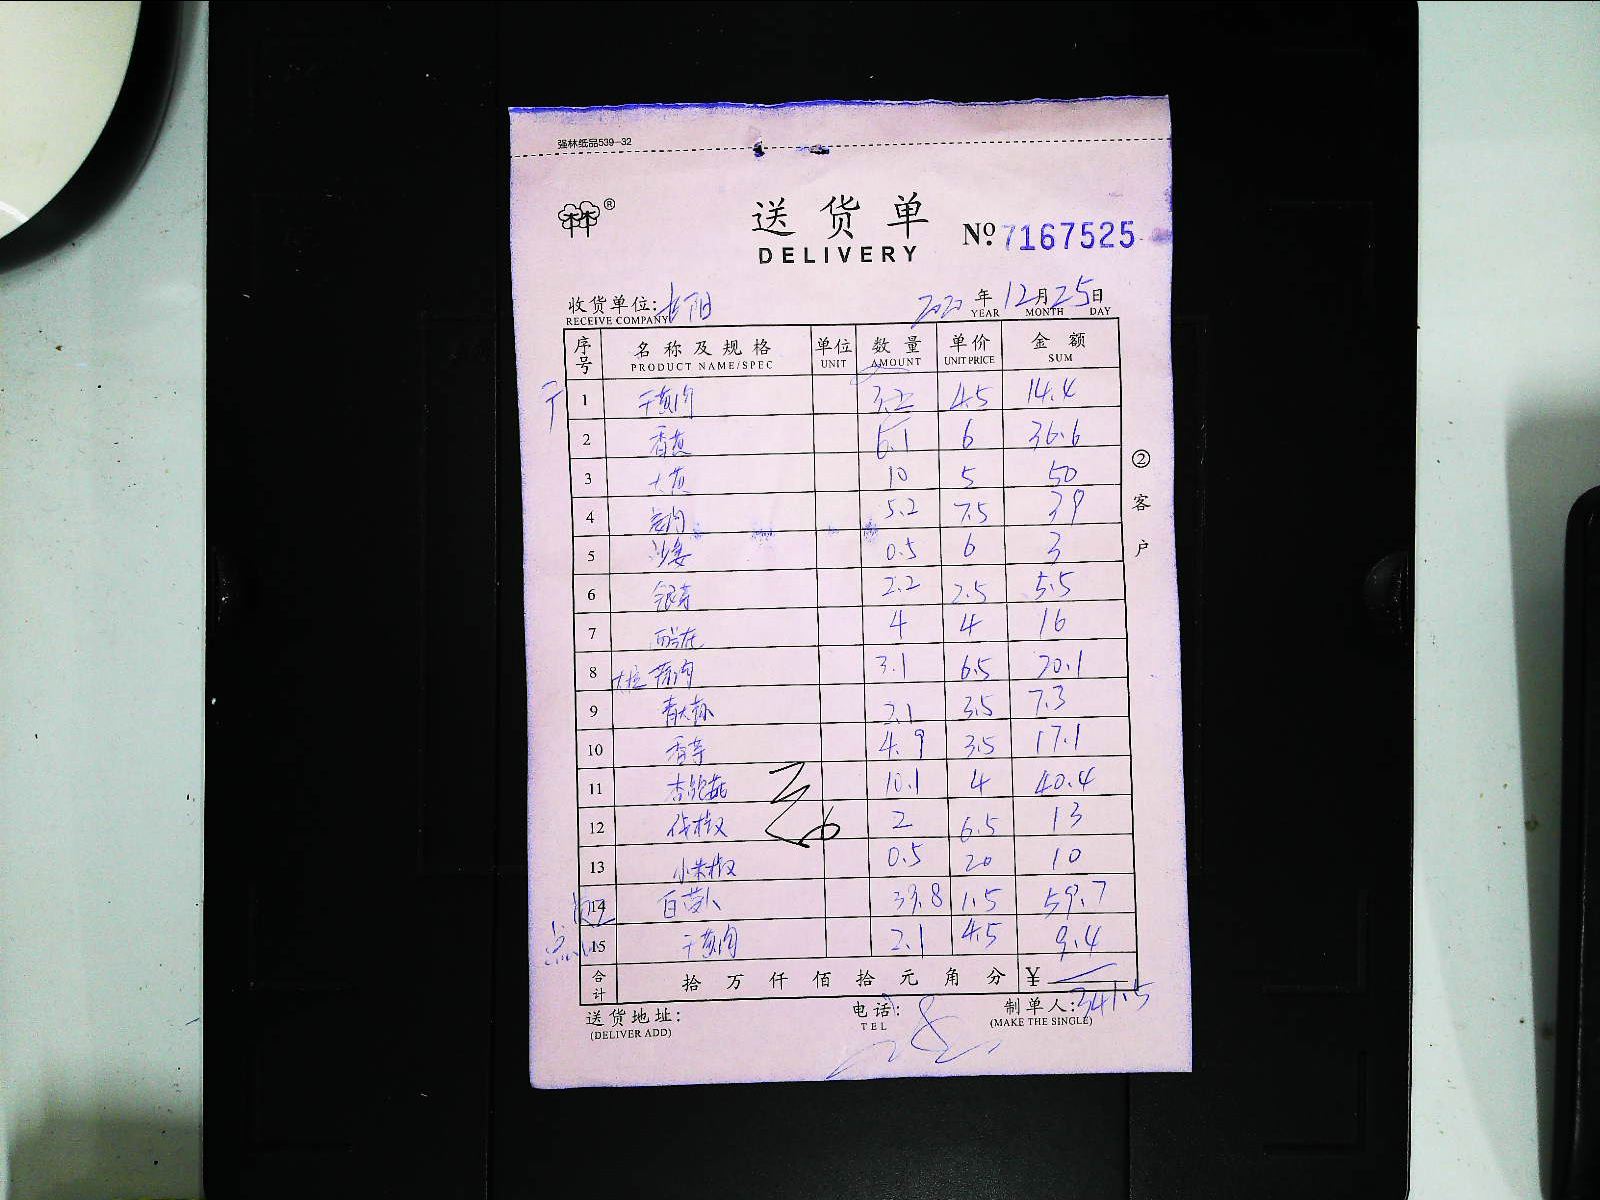 强林纸品539-32
®
送货单 Nº 7167525
DELIVERY
收货单位: 2020 年 12 月 25 日
RECEIVE COMPANY YEAR MONTH DAY
序号 名称及规格 单位 数量 单价 金额
PRODUCT NAME/SPEC UNIT AMOUNT UNIT PRICE SUM
1 干葱肉 3.2 4.5 14.4
2 香葱 6.1 6 36.6
3 10 5 50
4 5.2 7.5 39
5 沙姜 0.5 6 3
6 2.2 2.5 5.5
7 西芹 4 4 16
8 3.1 6.5 20.1
9 2.1 3.5 7.3
10 香芋 4.9 3.5 17.1
11 杏鲍菇 10.1 4 40.4
12 2 6.5 13
13 小米椒 0.5 20 10
14 白萝卜 39.8 1.5 59.7
15 干葱肉 2.1 4.5 9.4
合计 拾万仟佰拾元角分 ¥ 341.5
送货地址: 电话: 制单人:
(DELIVER ADD) TEL (MAKE THE SINGLE)
② 客户